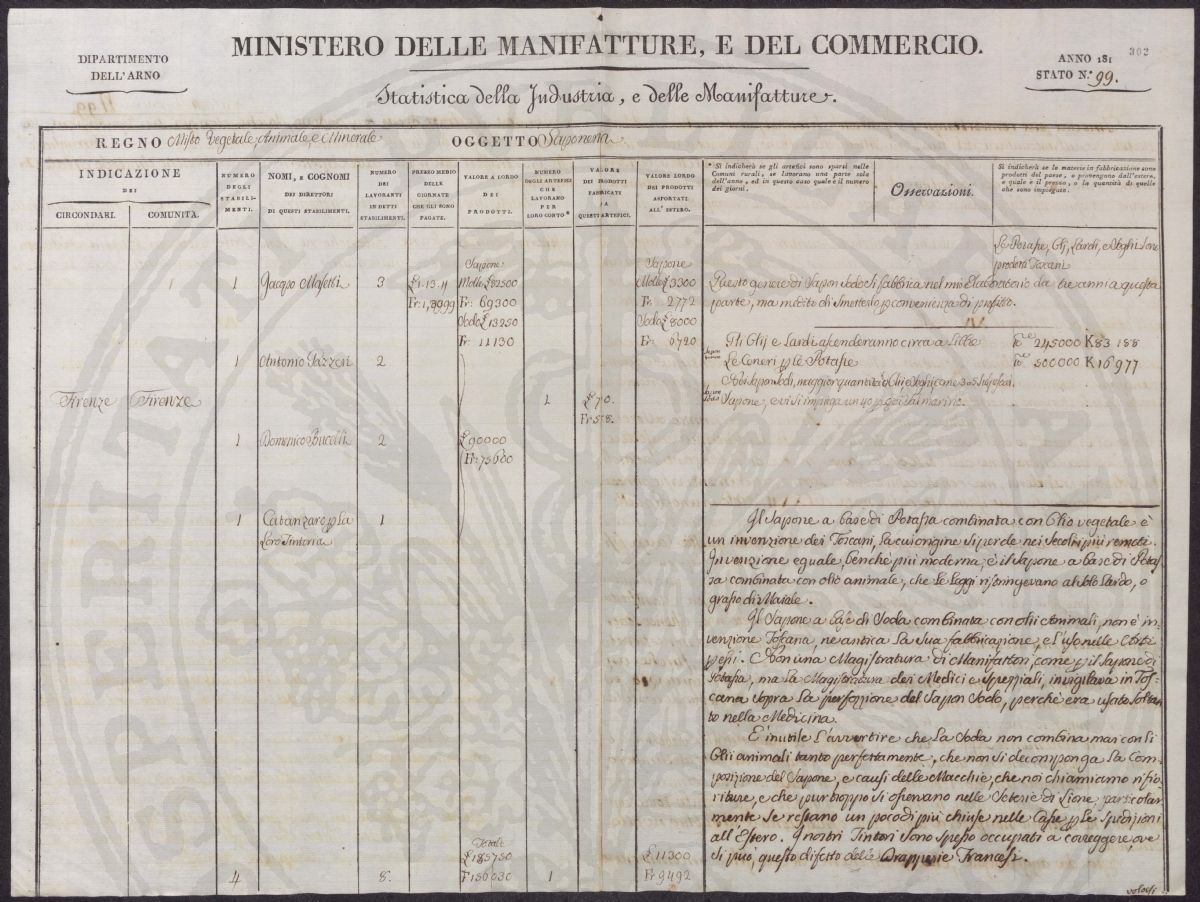 302
DIPARTIMENTO
DELL'ARNO
MINISTERO DELLE MANIFATTURE, E DEL COMMERCIO.
ANNO 181
STATO N.º 99.
Statistica della Industria, e delle Manifatture.
REGNO Misto Vegetale, Animale, e Minerale
OGGETTO Saponeria
INDICAZIONE
DEI
CIRCONDARI.
COMUNITÀ.
NUMERO
DEGLI
STABILI-
MENTI.
NOMI, E COGNOMI
DEI DIRETTORI
DI QUESTI STABILIMENTI.
NUMERO
DEI
LAVORANTI
IN DETTI
STABILIMENTI.
PREZZO MEDIO
DELLE
GIORNATE
CHE GLI SONO
PAGATE.
VALORE A LORDO
DEI
PRODOTTI.
NUMERO
DEGLI ARTEFICI
CHE
LAVORANO
PER
LORO CONTO*
VALORE
DEI PRODOTTI
FABBRICATI
DA
QUESTI ARTEFICI.
VALORE LORDO
DEI PRODOTTI
ASPORTATI
ALL'ESTERO.
* Si indicherà se gli artefici sono sparsi nelle
Comuni rurali, se lavorano una parte sola
dell'anno, ed in questo caso quale è il numero
dei giorni.
Osservazioni.
Si indicherà se le materie in fabbricazione sono
prodotti del paese, o provengono dall'estero,
e quale è il prezzo, o la quantità di quelle
che sono impiegate.
Le Potasse, Olj, Lardi, e Seghi sono
prodotti Toscani
1 Jacopo Masetti 3 £ 1.13.4
Fr: 1,3999
Sapone
Molle £ 82500
Fr: 69300
Sodo £ 13250
Fr: 11130
Sapone
Molle £ 3300
Fr: 2772
Sodo £ 8000
Fr: 6720
Questo genere di Sapon Sodo si fabbrica nel mio Elaboratorio da tre anni a questa
parte, ma medito di smetterlo p convenienza di profitto.
Gli Olij e Lardi ascenderanno circa a Libbre 245000 K 83.188
Le Ceneri p le Potasse 500000 K 16977
1 Antonio 2
Sapone, e vi si impiega un 40 p sal marino.
Firenze Firenze
1 £ 70.
Fr 58.8.
1 Domenico Bucelli 2 £ 90000
Fr: 75600
1 Catanzaro p la
Loro Tintoria 1
Il Sapone a base di Potassa combinata con Olio vegetale è
un invenzione dei Toscani, la cui origine si perde nei Secoli più remoti.
Invenzione eguale, benchè più moderna, è il Sapone a base di Potas
sa combinata con olio animale, che le Leggi ristringevano al solo Lardo, o
grasso di Maiale.
Il Sapone a base di Soda combinata con olii Animali, non è in
venzione Toscana, ne antica la sua fabbricazione, e l'uso nelle Arti
Non una Magistratura di Manifattori, come p il Sapone di
Potassa, ma la Magistratura dei Medici e Speziali, invigilava in Tos
cana sopra la perfezione del Sapon Sodo, perchè era usato soltan
to nella Medicina.
E' inutile l'avvertire che la Soda non combina mai con li
Olii animali tanto perfettamente, che non si decomponga la Com
posizione del Sapone, e causi delle Macchie, che noi chiamiamo rifio
riture, e che pur troppo si osservano nelle Seterie di Lione particolar
mente se restano un poco di più chiuse nelle Casse p le spedizioni
all'Estero. I nostri Tintori sono spesso occupati a correggere, ove
si può, questo difetto delle Drapperie Francesi.
Totale
£ 185750 £ 11300
4 8. F 156030 1 Fr 9492